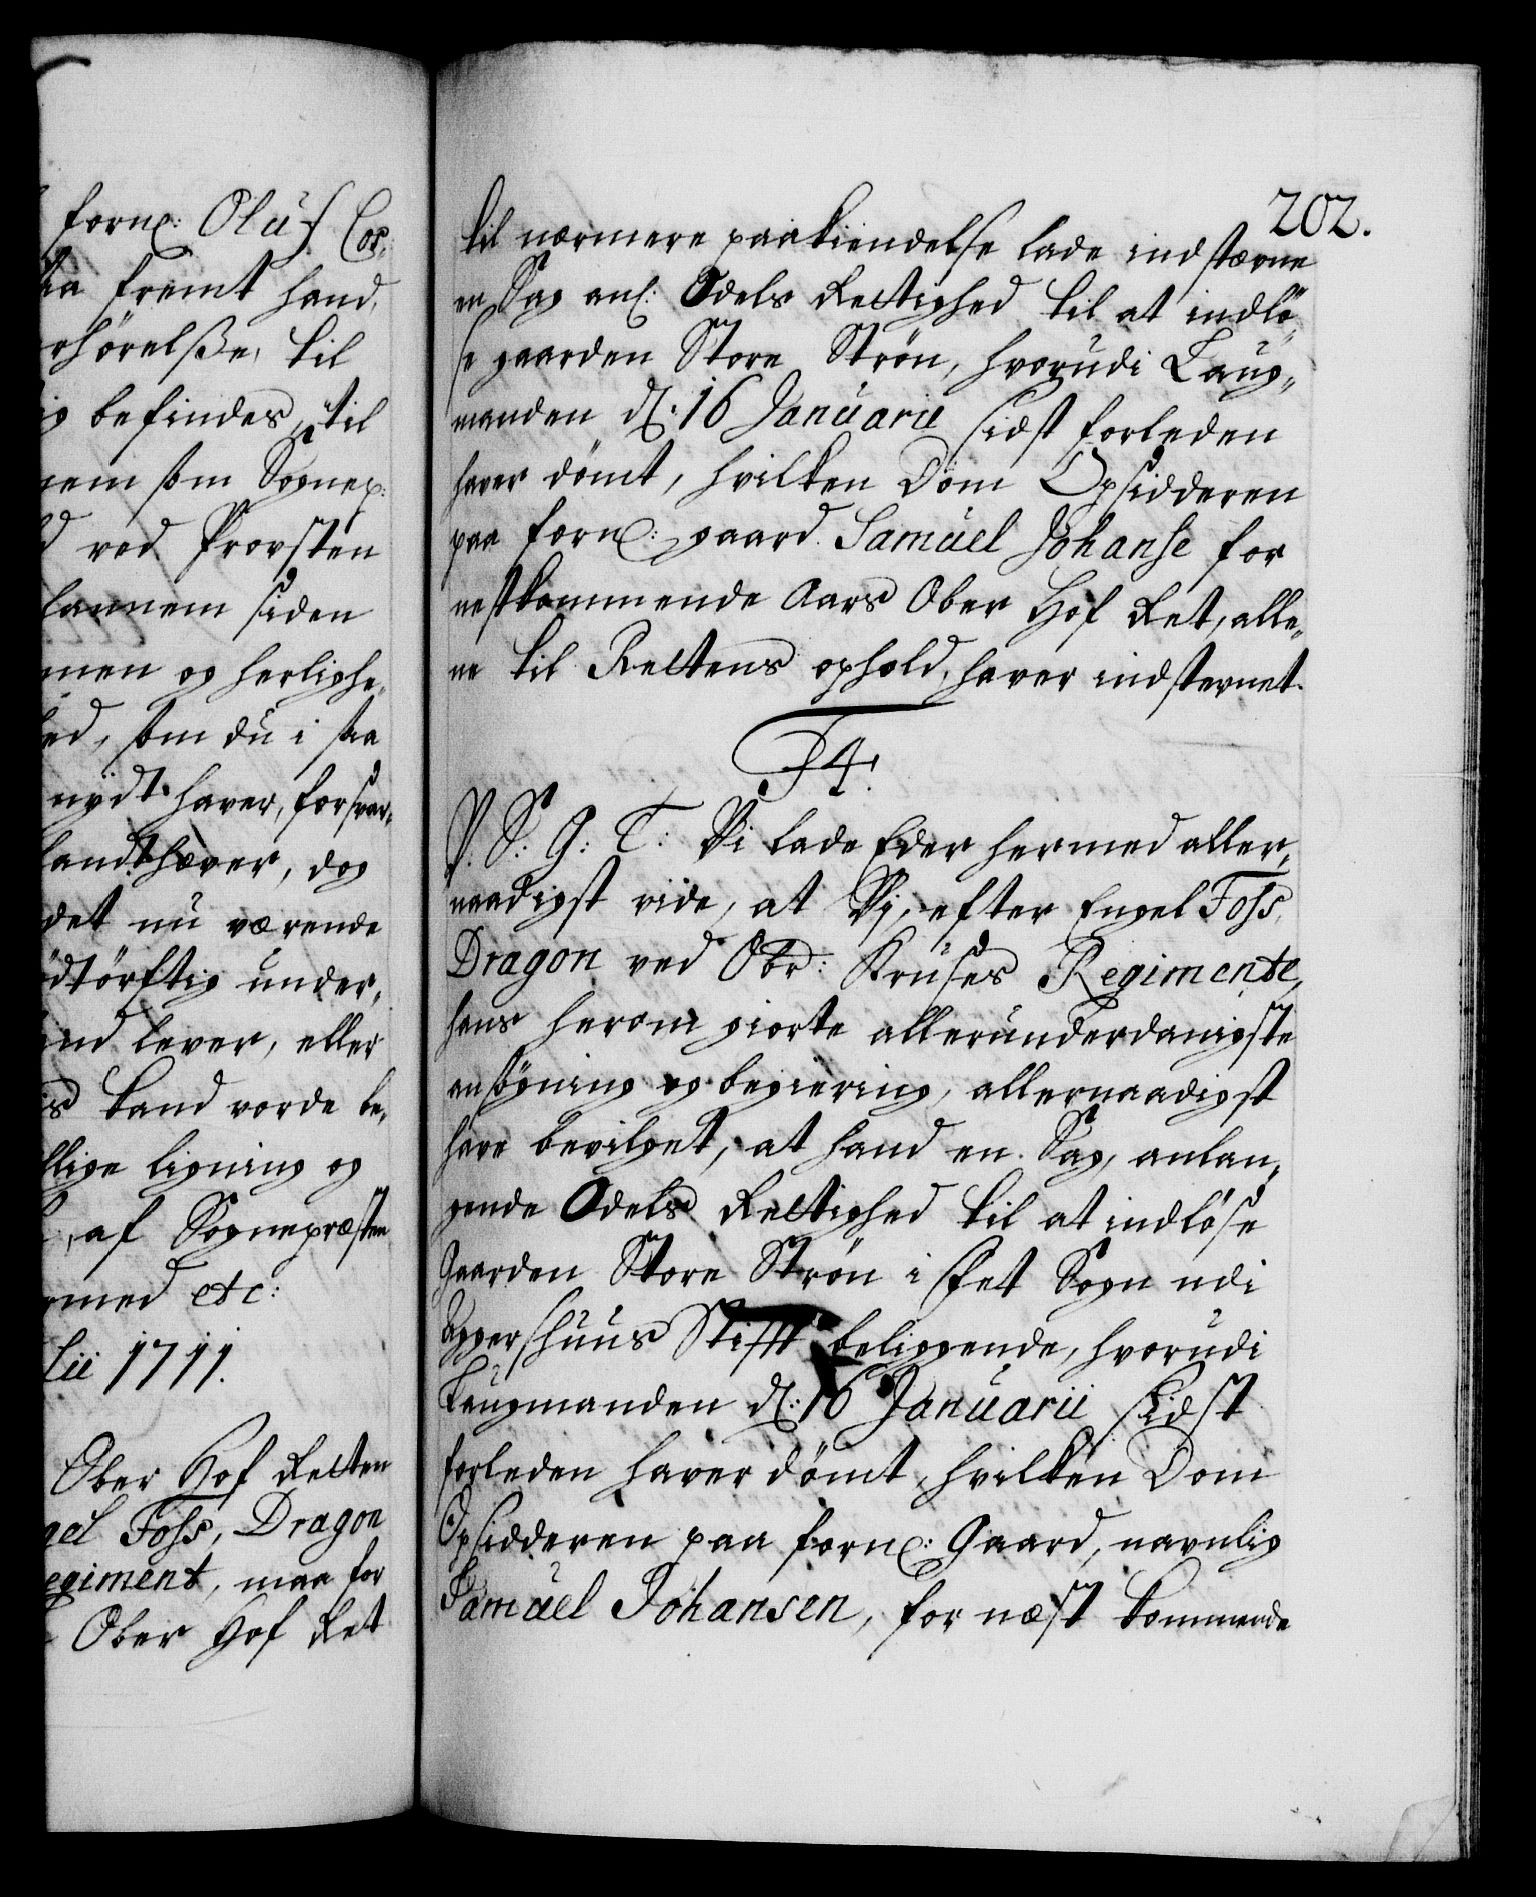 forn: Oluf Cos:
saa fremt hand,
rhörelsse, til
ig befindes, til
nem som Sognep:
d ved Provsten
lannem siden
men og herlighe„
hed, som du i saa
nydt haver, forsvar„
landt hæver, dog
det nu værende
ödtörftig under„
ind lever, eller
is kand vorde be„
llige ligning og
, af Sognepræsten
rmed etc:
lii 1711.
Ober Hof Retten
gel Foss, Dragon
egiment, maa for
Ober Hof Ret
202.
til nærmere paakiendelse lade indstævne
en Sag anl: Odels Rettighed til at indlö„
se gaarden Store Strön, hvorudi Laug„
manden d: 16 Januarii sidst forleden
haver dömt, hvilken Dom Opsidderen
paa forn: gaard Samuel Johanse for
nestkommende Aars Ober Hof Ret, alle„
ne til Rettens ophold, haver indstevnet.
F4.
V. S: G: T: Vi lade Eder hermed aller„
naadigst vide, at Vi, efter Engel Foss,
Dragon ved Obr: Kruses Regimente,
hans herom giorte allerunderdanigste
ansögning og begiering, allernaadigst
have bevilget, at hand en Sag, anlan„
gende Odels Rettighed til at indlöse
Gaarden Store Strön i Fet Sogn udi
Aggershuus Stifft beliggende, hvorudi
Laugmanden d: 16 Januarii sidst
forleden haver dömt, hvilken Dom
Opsidderen paa forn: Gaard, navnlig
Samuel Johansen, for næst kommende